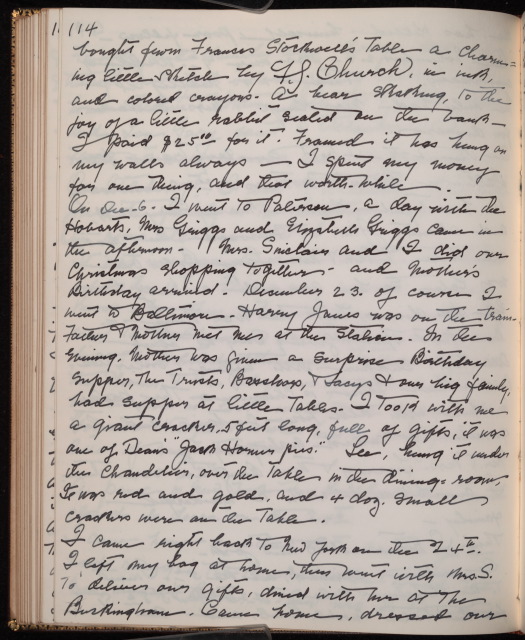 114
bought from Frances Stockwell's Table a Charm=
ing little sketch by F. S. Church, in ink,
and colored crayons. A bear skating, to the
joy of a little rabbit seated on the bank—
I paid $25.00 for it. Framed it has hung on
my walls always — I spent my money
for one thing, and that worth-while.
On Dec. 6. I went to Paterson, a day with the
Hobarts, Mrs Griggs and Elizabeth Griggs came in
the afternoon. Mrs. Sinclair and I did our
Christmas shopping together - and Mother's
Birthday arrived. December 23. of course I
went to Baltimore. Harry Jones was on the train.
Father & Mother met me at the Station. In the
Evening, Mother was given a surprise Birthday
supper, the Trusts, & our big family,
had supper at little tables. I took with me
a giant cracker, 5 feet long, full of gifts, it was
one of Dean's "Jack Horner pies." Lee, hung it under
the Chandelier, over the table in the dining-room,
It was red and gold, and 4 doz. small
crackers were on the Table.
I came right back to New York on the 24th.
I left my bag at home, then went with Mrs. S.
To deliver our gifts, dined with her at the
Buckingham. Came home, dressed our